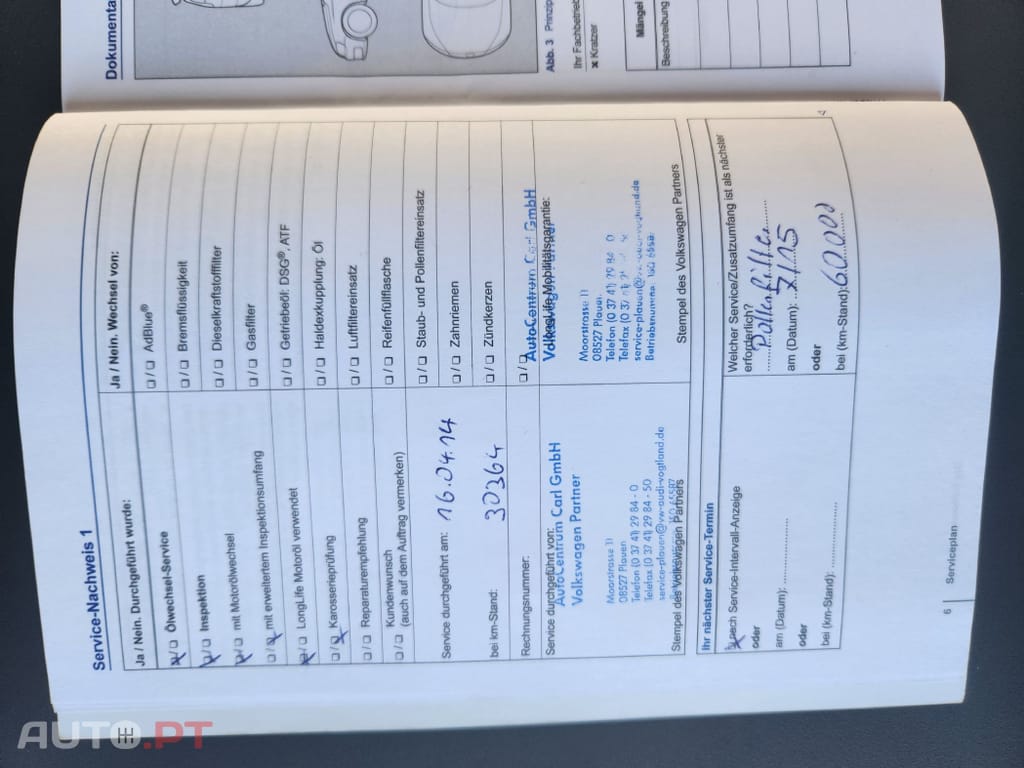 Dokumenta
Abb. 3 Prinzip
Ihr Fachbetrieb
✗ Kratzer
Mängel
Beschreibung
Service-Nachweis 1
Ja / Nein. Durchgeführt wurde:
❑ / ❑ Ölwechsel-Service
❑ / ❑ Inspektion
❑ / ❑ mit Motorölwechsel
❑ / ❑ mit erweitertem Inspektionsumfang
❑ / ❑ LongLife Motoröl verwendet
❑ / ❑ Karosserieprüfung
❑ / ❑ Reparaturempfehlung
❑ / ❑ Kundenwunsch
(auch auf dem Auftrag vermerken)
Service durchgeführt am: 16.04.14
bei km-Stand: 30364
Rechnungsnummer:
Service durchgeführt von:
AutoCentrum Carl GmbH
Volkswagen Partner
Moorstrasse 11
08527 Plauen
Telefon (0 37 41) 29 84 - 0
Telefax (0 37 41) 29 84 - 50
service-plauen@vw-audi-vogtland.de
Stempel des Volkswagen Partners
Ja / Nein. Wechsel von:
❑ / ❑ AdBlue®
❑ / ❑ Bremsflüssigkeit
❑ / ❑ Dieselkraftstofffilter
❑ / ❑ Gasfilter
❑ / ❑ Getriebeöl: DSG®, ATF
❑ / ❑ Haldexkupplung: Öl
❑ / ❑ Luftfiltereinsatz
❑ / ❑ Reifenfüllflasche
❑ / ❑ Staub- und Pollenfiltereinsatz
❑ / ❑ Zahnriemen
❑ / ❑ Zündkerzen
❑ / ❑
AutoCentrum Carl GmbH
LongLife Mobilitätsgarantie:
Moorstrasse 11
08527 Plauen
Telefon (0 37 41) 29 84 0
Telefax
Stempel des Volkswagen Partners
Ihr nächster Service-Termin
❑ nach Service-Intervall-Anzeige
oder
am (Datum):
oder
bei (km-Stand):
Welcher Service/Zusatzumfang ist als nächster
erforderlich?
Pollenfilter
am (Datum): 7/15
oder
bei (km-Stand): 60.000
6 Serviceplan
AUTO.PT